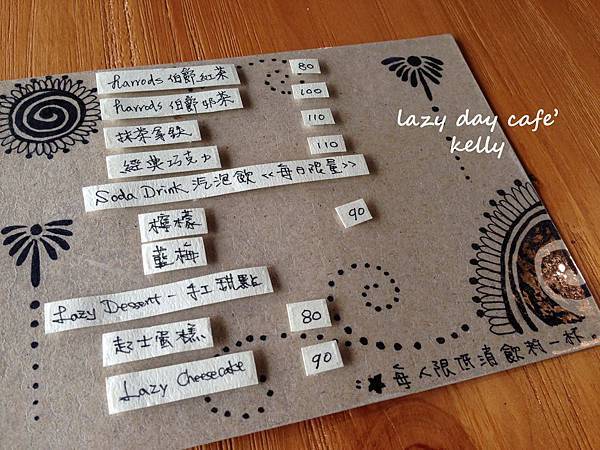 Harrods 伯爵紅茶 80
Harrods 伯爵奶茶 100
抹茶拿鐵 110
經典巧克力 110
Soda Drink 汽泡飲 <<每日限量>>
檸檬 90
藍莓
Lazy Dessert - 手工甜點
起士蛋糕 80
Lazy Cheesecake 90
★ 每人限低消飲料一杯
lazy day cafe'
kelly